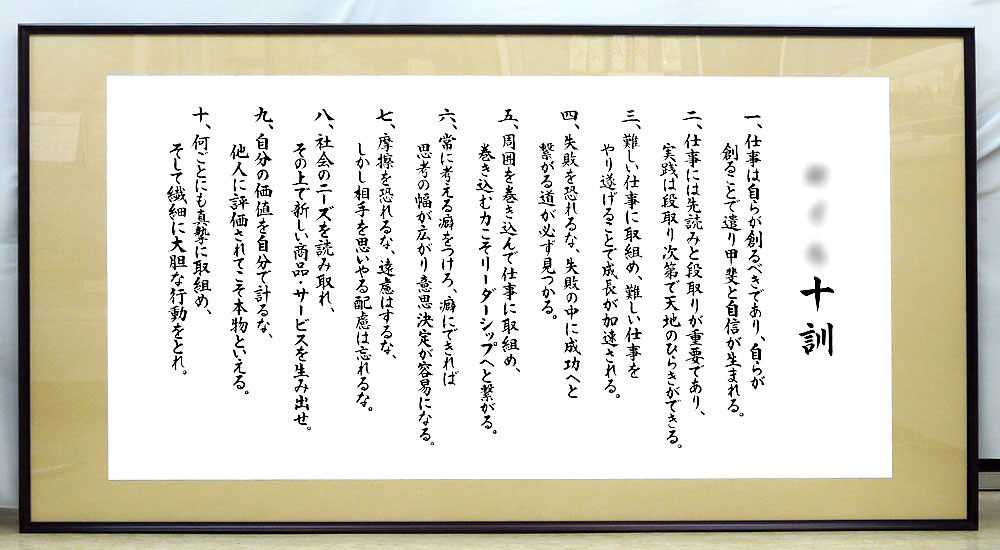 十訓
一、仕事は自らが創るべきであり、自らが
創ることで遣り甲斐と自信が生まれる。
二、仕事には先読みと段取りが重要であり、
実践は段取り次第で天地のひらきができる。
三、難しい仕事に取組め、難しい仕事を
やり遂げることで成長が加速される。
四、失敗を恐れるな、失敗の中に成功へと
繋がる道が必ず見つかる。
五、周囲を巻き込んで仕事に取組め、
巻き込む力こそリーダーシップへと繋がる。
六、常に考える癖をつけろ、癖にできれば
思考の幅が広がり意思決定が容易になる。
七、摩擦を恐れるな、遠慮はするな、
しかし相手を思いやる配慮は忘れるな。
八、社会のニーズを読み取れ、
その上で新しい商品・サービスを生み出せ。
九、自分の価値を自分で計るな、
他人に評価されてこそ本物といえる。
十、何ごとにも真摯に取組め、
そして繊細に大胆な行動をとれ。